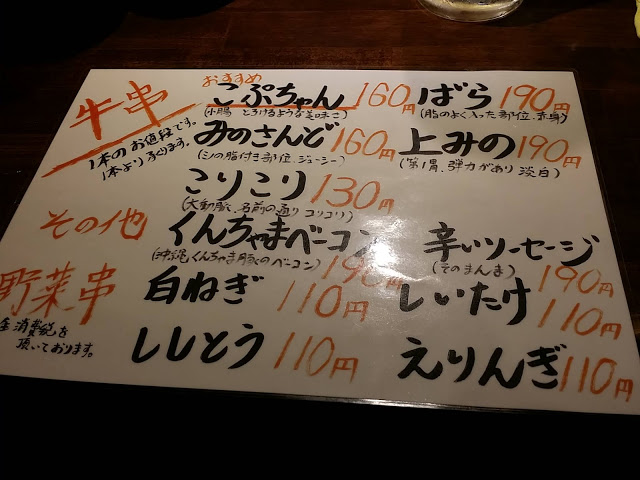 牛串
1本のお値段です。
1本より承ります。
おすすめ
こぷちゃん 160円
(小腸 とろけるような美味さ)
ばら 190円
(脂のよく入った部位、赤身)
みのさんど 160円
(ミノの脂付き部位、ジューシー)
上みの 190円
(第1胃、弾力があり 淡白)
こりこり 130円
(大動脈、名前の通り コリコリ)
その他
くんちゃまベーコン
(沖縄、くんちゃま豚のベーコン)
190円
辛いソーセージ
(そのまんま)
190円
野菜串
消費税を
頂いております。
白ねぎ 110円
しいたけ 110円
ししとう 110円
えりんぎ 110円